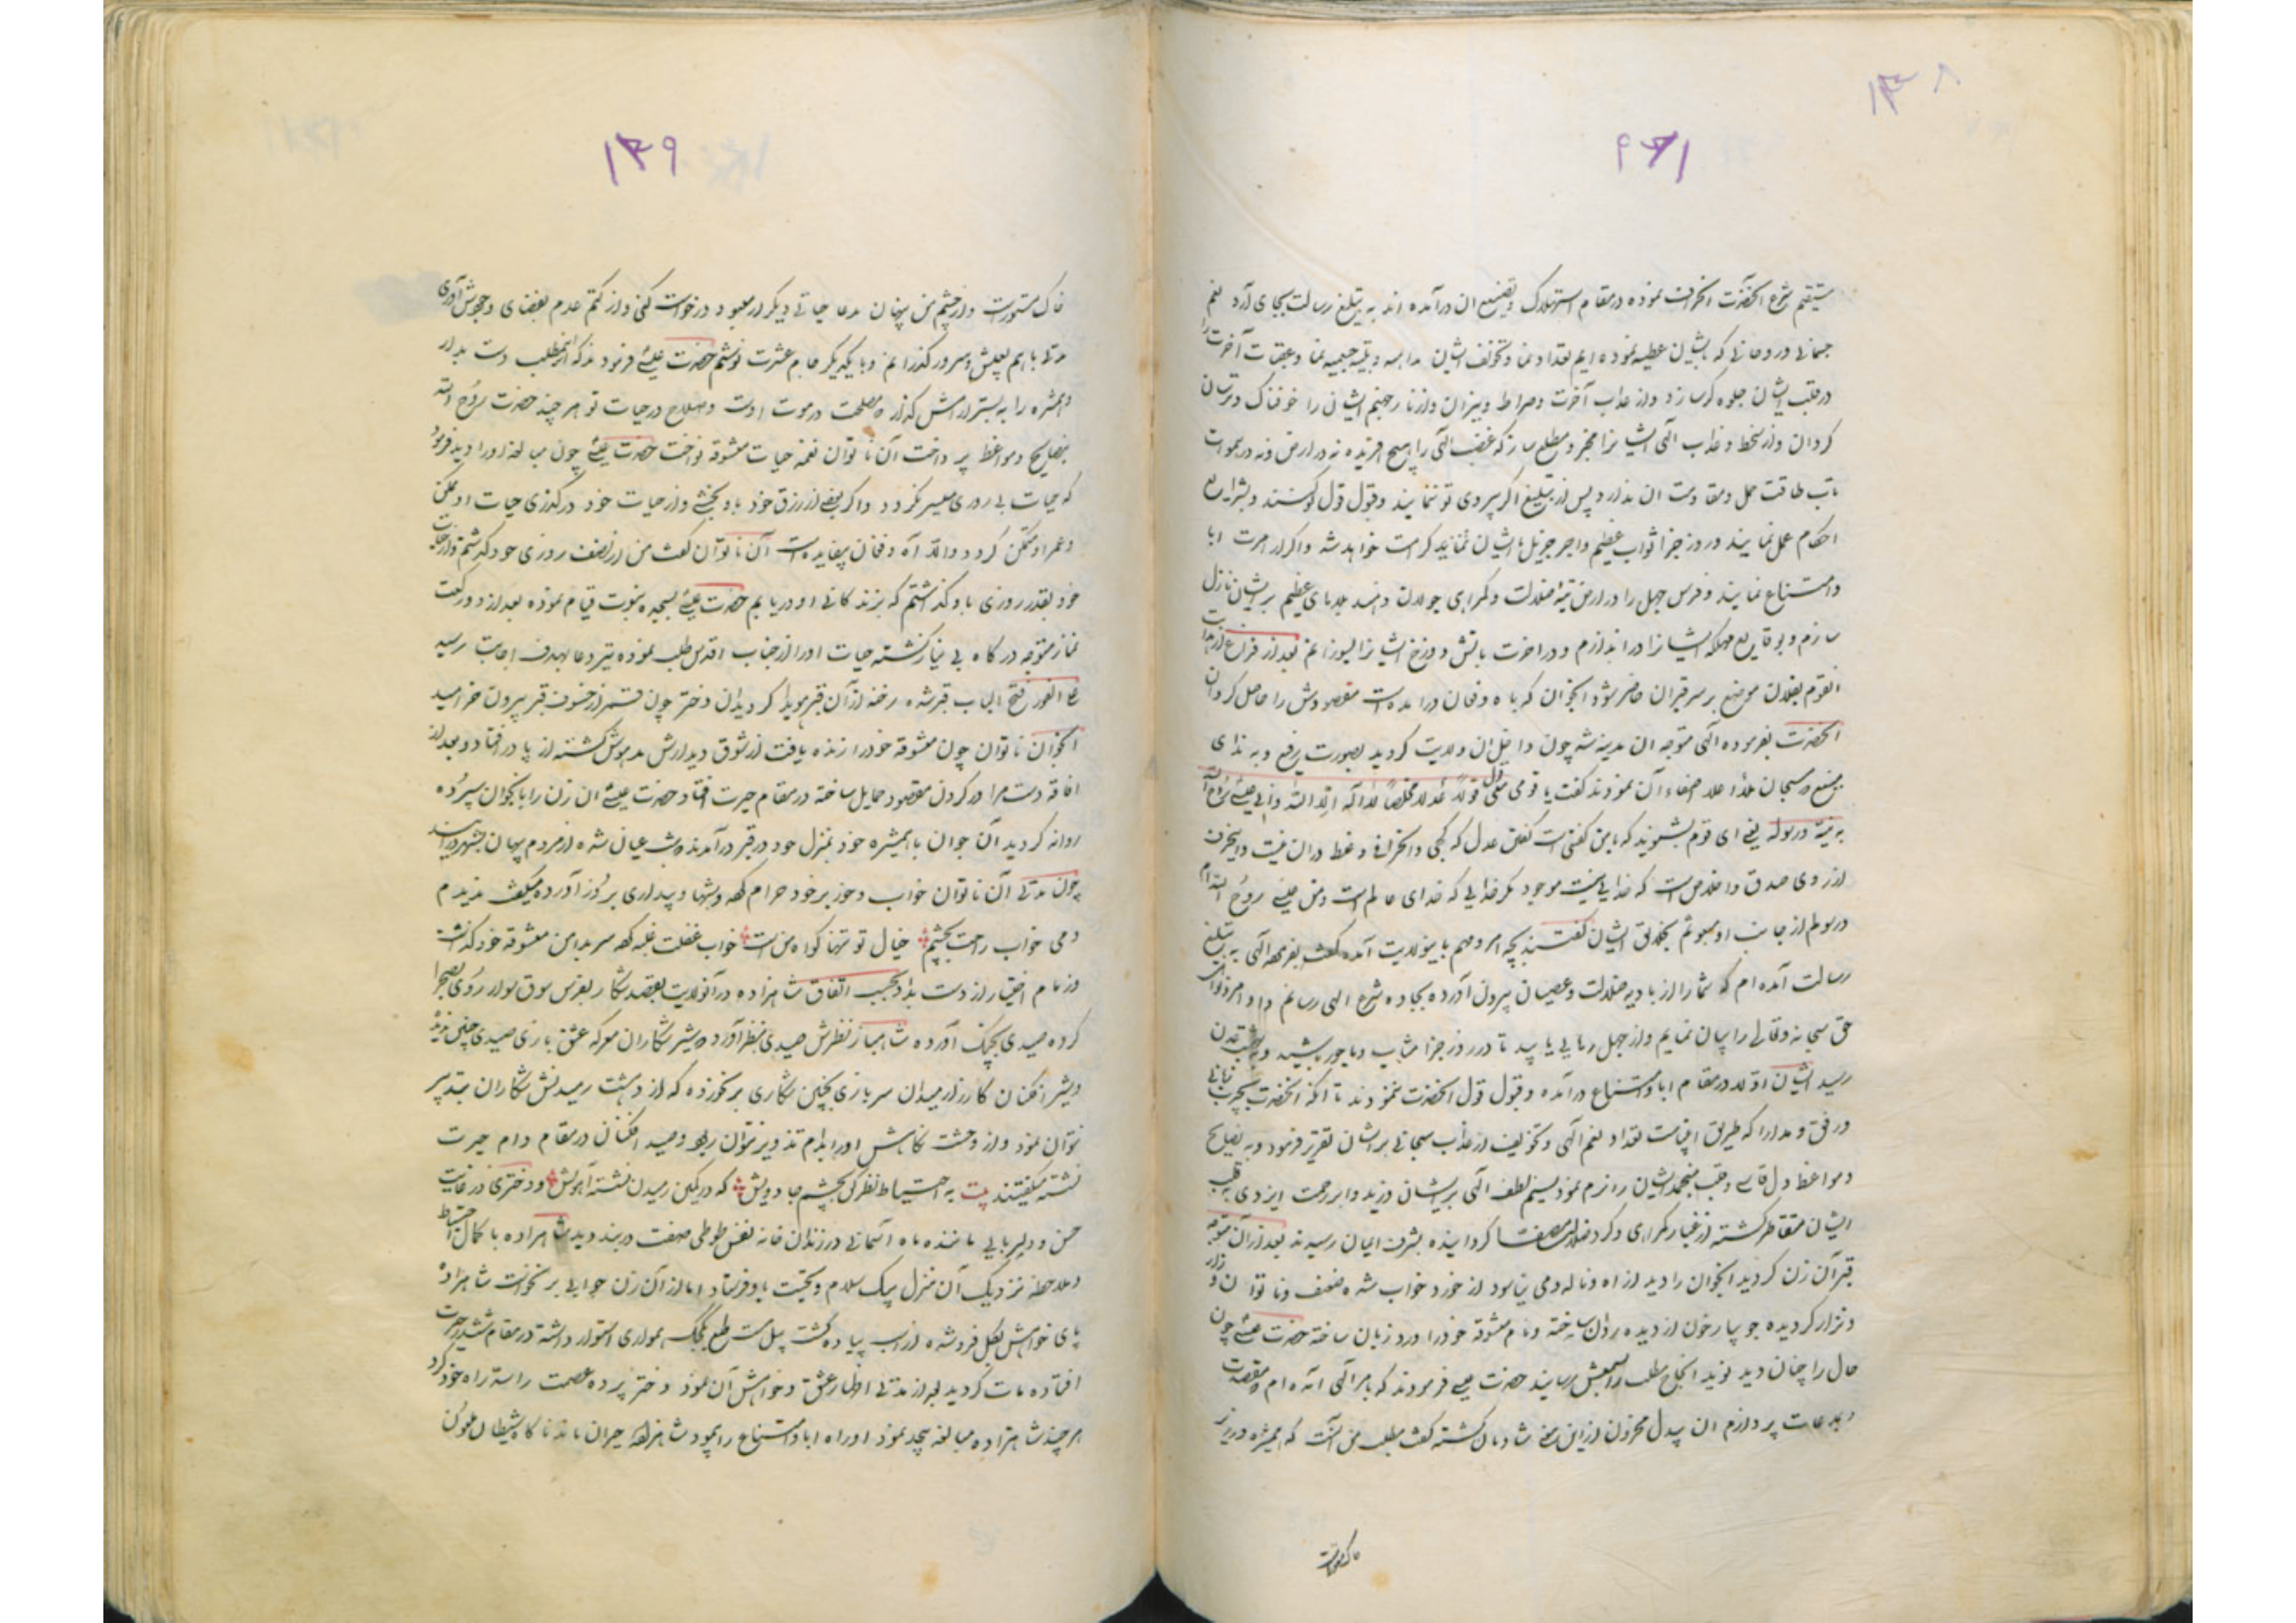 ۱۳۸
مستقیم شرع آنحضرت انحراف نموده در مقام استهلاک و تضییع ان درآمده اند به تبلیغ رسالت بجای آرد نعم
جسمانی و روحانی که بایشان عطیه نموده ایم تعداد نما و تخویف ایشان و عقبات آخرت را
در قلب ایشان جلوه گر سازد و از عذاب آخرت و صراط و میزان و از نار جهنم ایشان را خوفناک و ترسان
گردان و از سخط و عذاب الهی ایشانرا مخبر و مطلع ساز که غضب الهی را هیچ افریده نه در ارض و نه در سموات
تاب طاقت حمل و مقاومت ان ندارد پس از تبلیغ اگر پیروی تو نمایند و قبول قول کنند و بشرایع
احکام عمل نمایند در روز جزا ثواب عظیم و اجر جزیل بایشان کرامت خواهد شد و اگر از امرت ابا
و امتناع نمایند و فرس جهل را در ارض تیه ضلالت و گمراهی جولان دهند بلاهای عظیم بر ایشان نازل
سازم و بوقایع مهلکه ایشانرا در اندازم و در اخرت باتش دوزخ ایشانرا بسوزانم بعد از فراغ از هدایت
انقوم بفلان موضع بر سر قبر ان حاضر شو و انجوان که باه و فغان درامده است مقصودش را حاصل گردان
انحضرت بفرموده الهی متوجه ان مدینه شد چون داخل ان ولایت گردید بصورت رفیع و به ندای
ای قوم بشنوید که بامن گفتنی است گفتن عدل که کجی و انحرافی و غلط دران نیست
از روی صدق و اخلاص است که خدایی نیست موجود مگر خدایی که خدای عالم است و من عیسی روح الله ام
و رسولم از جانب او مبعوثم بخلایق ایشان گفتند بچه امر و مهم باین ولایت آمده گفت بفرموده الهی به تبلیغ
رسالت آمده ام که شما را از بادیه ضلالت و عصیان بیرون آورده بجاده شرع الهی رسانم و اوامر و نواهی
حق سبحانه و تعالی را بیان نمایم و از جهل رهایی یابید تا در روز جزا مثاب و ماجور باشید
ایشان اولا در مقام ابا و امتناع درآمده و قبول قول انحضرت ننمودند تا آنکه انحضرت بچرب زبانی
و رفق و مدارا که طریق انبیاست تعداد نعم الهی و تخویف از عذاب سبحانی بر ایشان تقریر فرمود و به نصایح
و مواعظ دل قاسی و قلب منجمد ایشان را نرم نمود نسیم لطف الهی بر ایشان وزید و ابر رحمت ایزدی به قلب
ایشان متقاطر گشته از غبار گمراهی و گرد ضلالت مصفا گردانیده بشرف ایمان رسیدند بعد ازان متوجه
قبر آن زن گردید انجوان را دید از اه و ناله دمی نیاسود از خورد خواب شده ضعف و ناتوان و زار
و نزار گردیده جویبار خون از دیده روان ساخته و نام معشوقه خود را ورد زبان ساخته حضرت عیسی چون
حال را چنان دید نوید انجاح مطلب را بسمعش رسانید حضرت عیسی فرمودند که بامر الهی آمده ام
پردازم ان بیدل محزون ازین سخن شادمان گشته گفت مطلب من آنست که همشیره در زیر
خاک مستورست
۱۳۹
خاک مستورست و از چشم من پنهان مدعا حیاتی دیگر از معبود درخواست کنی و از کتم عدم بفضای وجودش آوری
مدتی باهم بعیش و سرور گذرانیم و با یکدیگر جام عشرت نوشیم حضرت عیسی فرمودند که ازین مطلب دست بدار
و همشیره را به بستر ارامش گذار مصلحت در موت اوست و صلاح در حیات تو هر چند حضرت روح الله
بنصایح و مواعظ پرداخت آن ناتوان نغمه حیات معشوقه نواخت حضرت عیسی چون مبالغه او را دید فرمود
که حیات بی روزی میسر نگردد و اگر نصفی از رزق خود باو بخشی و از حیات خود درگذری حیات او ممکن
و عمر او متمکن گردد والا آه و فغان بیفایده است آن ناتوان گفت من از نصف روزی خود گذشتم و از حیات
خود بقدر روزی باو گذاشتم که بزندگانی او دریابم حضرت عیسی بسجده نبوت قیام نموده بعد از دو رکعت
نماز متوجه درگاه بی نیاز گشته حیات او را از جناب اقدس طلب نموده تیر دعا بهدف اجابت رسید
علی الفور فتح الباب قبر شده رخنه ازآن قبر هویدا گردید ان دختر چون قمر از خسوف قبر بیرون خرامید
انجوان ناتوان چون معشوقه خود را زنده یافت از شوق دیدارش مدهوش گشته از پا در افتاد و بعد از
افاقه دست مراد در گردن مقصود حمایل ساخته در مقام حیرت افتاد حضرت عیسی ان زن را بانجوان سپرده
روانه گردید آن جوان با همشیره خود بمنزل خود در قبر درآمدند
چون مدتی آن ناتوان خواب و خور بر خود حرام کرده و شبها و بیداری بروز آورده میگفت ندیدم
دمی خواب راحت بچشم خیال تو تنها گواه من است خواب غفلت غلبه کرده سر بدامن معشوقه خود گذاشت
و زمام اختیار از دست بداد بحسب اتفاق شاهزاده در آنولایت بقصد شکار بفرس سوق سوار روی بصحرا
کرده صیدی بچنگ آورده شاهباز نظرش صیدی بنظر آورد شیر شکاران معرکه عشق بازی صیدی چنین ندیده
و شیر افکنان کارزار میدان سربازی بچنین شکاری برنخورده که از دهشت رمیدنش شکاران بتدبیر
نتوان نمود و از وحشت نگاهش او را بدام تزویر نتوان ربود و صید افکنان در مقام دام حیرت
نشسته میگفتند بیت به احتیاط نظر کن بچشم جادویش که در کمین رمیدن نشسته آهویش و دختری در غایت
حسن و دلربایی ماننده ماه آسمانی در زندان خانه نفس طوطی صفت در بند دید شاهزاده با کمال احتیاط
و ملاحظه نزدیک آن منزل پیک سلام و تحیت باو فرستاد اما از آن زن جوابی برنخواست شاهزاده
پای خواهش بگل فروشده از اسب پیاده گشت پیل مست طبع بکجک همواری استوار داشته در مقام ششدر حیرت
افتاده مات گردید بعد از مدتی اظهار عشق و خواهش آن نمود دختر پرده عصمت را سد راه خود کرد
هر چند شاهزاده مبالغه بیحد نمود او راه ابا و امتناع را پیمود شاهزاده حیران ماند ناگاه شیطان ملعون